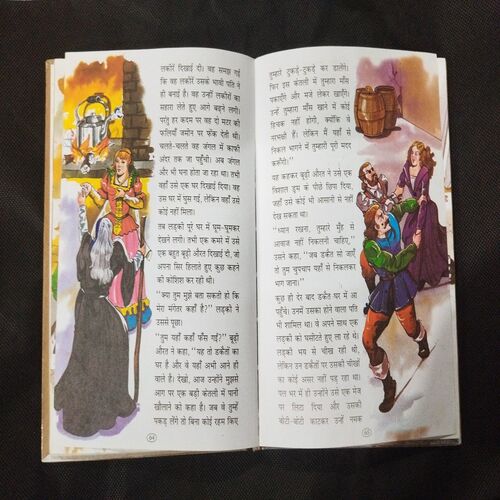 लकीरें दिखाई दीं। वह समझ गई
कि वह लकीरें उसके भावी पति ने
ही बनाई हैं। वह उन्हीं लकीरों का
सहारा लेते हुए आगे बढ़ने लगी।
परंतु हर कदम पर वह दो मटर की
फलियाँ जमीन पर फेंक देती थी।
चलते-चलते वह जंगल में काफी
अंदर तक जा पहुँची। अब जंगल
और भी घना होता जा रहा था। तभी
वहाँ उसे एक घर दिखाई दिया। वह
उस घर में घुस गई, लेकिन वहाँ उसे
कोई नहीं मिला।
तब लड़की पूरे घर में घूम-घूमकर
देखने लगी। तभी एक कमरे में उसे
एक बहुत बूढ़ी औरत दिखाई दी, जो
अपना सिर हिलाते हुए कुछ कहने
की कोशिश कर रही थी।
“क्या तुम मुझे बता सकती हो कि
मेरा मंगेतर कहाँ है?” लड़की ने
उससे पूछा।
“तुम यहाँ कहाँ फँस गई?” बूढ़ी
औरत ने कहा, “यह तो डकैतों का
घर है और वे यहाँ अभी आने ही
वाले हैं। देखो, आज उन्होंने मुझसे
आग पर एक बड़ी केतली में पानी
खौलाने को कहा है। जब वे तुम्हें
पकड़ लेंगे तो बिना कोई रहम किए
64
तुम्हारे टुकड़े-टुकड़े कर डालेंगे।
फिर इस केतली में तुम्हारा माँस
पकाएँगे और मजे लेकर खाएँगे।
उन्हें तुम्हारा माँस खाने में कोई
हिचक नहीं होगी, क्योंकि वे
नरभक्षी हैं। लेकिन मैं यहाँ से
निकल भागने में तुम्हारी पूरी मदद
करूँगी।”
यह कहकर बूढ़ी औरत ने उसे एक
विशाल ड्रम के पीछे छिपा दिया,
जहाँ उसे कोई भी आसानी से नहीं
देख सकता था।
“ध्यान रखना, तुम्हारे मुँह से
आवाज नहीं निकलनी चाहिए,”
उसने कहा, “जब डकैत सो जाएँ
तो तुम चुपचाप यहाँ से निकलकर
भाग जाना।”
कुछ ही देर बाद डकैत घर में आ
पहुँचे। उनमें उसका होने वाला पति
भी शामिल था। वे अपने साथ एक
लड़की को घसीटते हुए ला रहे थे।
लड़की भय से चीख रही थी,
लेकिन उन डकैतों पर उसकी चीखों
का कोई असर नहीं पड़ रहा था।
पल भर में ही उन्होंने उसे एक मेज
पर लिटा दिया और उसकी
बोटी-बोटी काटकर उन्हें नमक
65